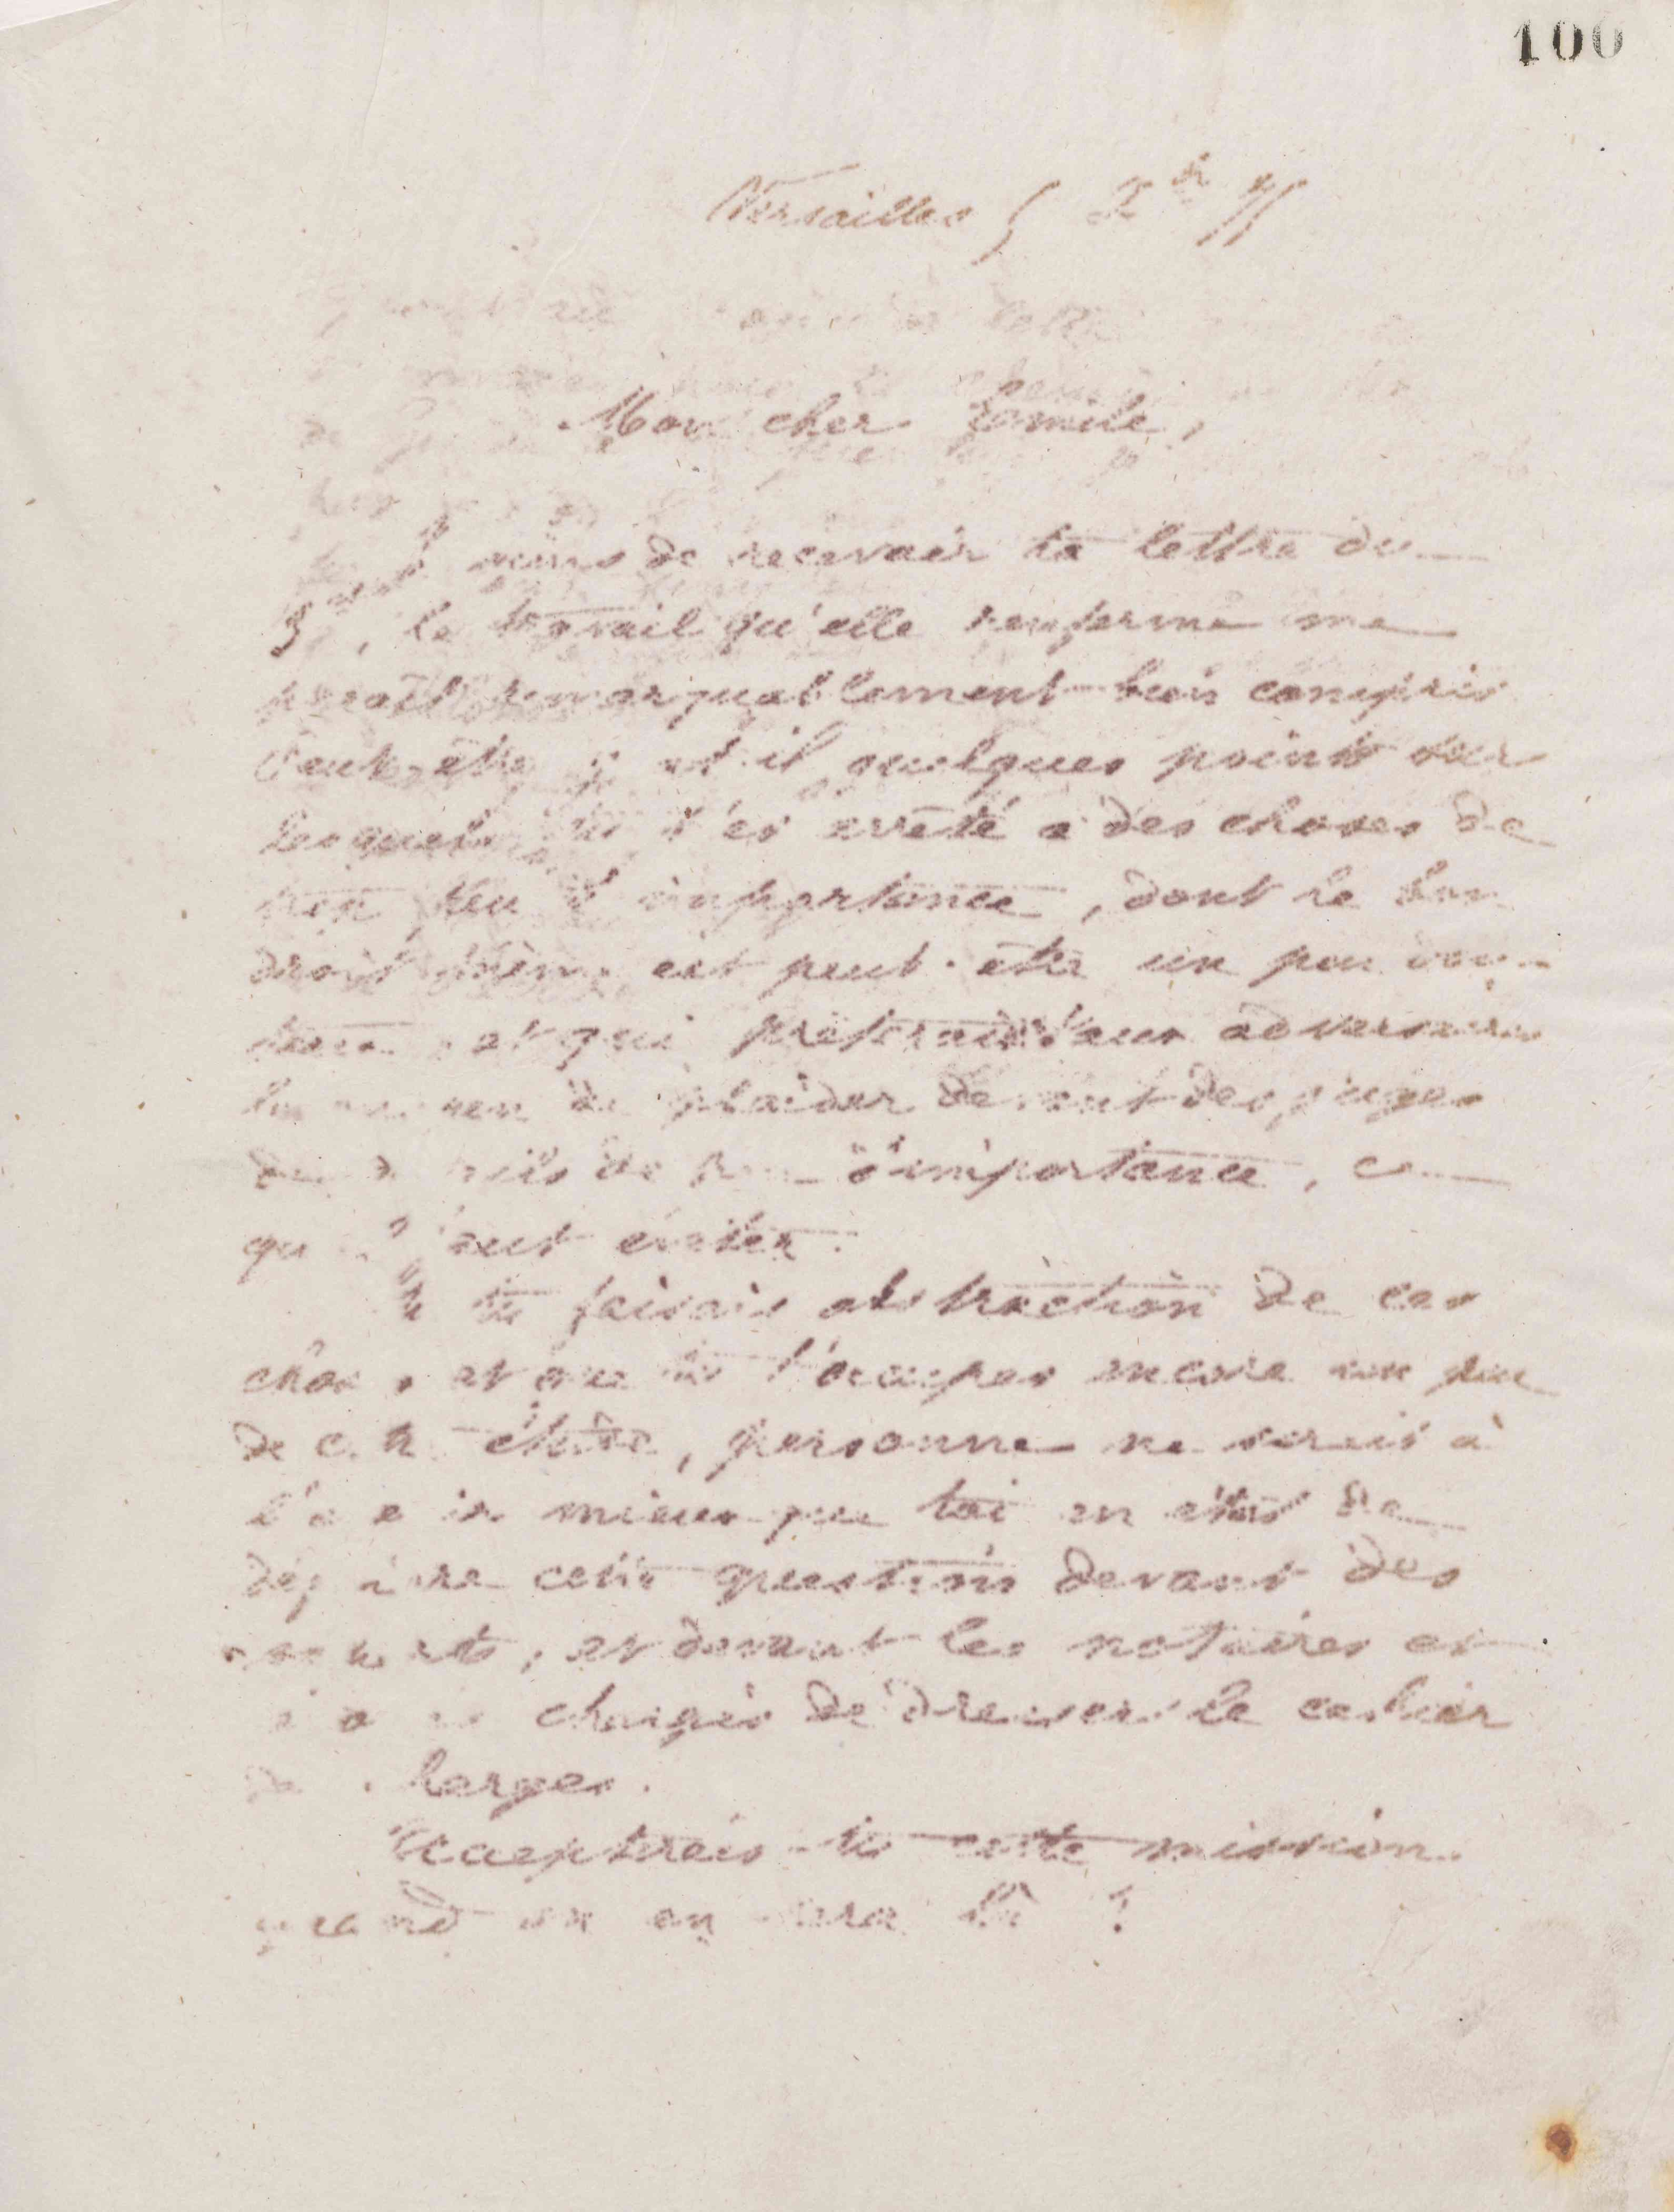 100
Versailles 5 Xbre 75
Mon cher Emile,
Je viens de recevoir ta lettre du
3, le travail qu'elle renferme me
paraît remarquablement bien compris
Peut-être y at-il quelques points sur
lesquels tu t'es arrêté à des choses de
trop peu d'importance, dont le bon
droit même est peut-être un peu dou-
teux et qui prêteraient aux adversaires
le moyen de plaider devant des juges
des détails de peu d'importance, ce
qu'il faut éviter.
Si tu faisais abstraction de ces
choses et que tu t'occupes encore un peu
de cette étude, personne ne serait à
l'avenir mieux que toi en état de
cette question devant des
experts, et devant les notaires
chargés de dresser le cahier
des charges.
Accepterais-tu cette mission
quand on en sera là ?